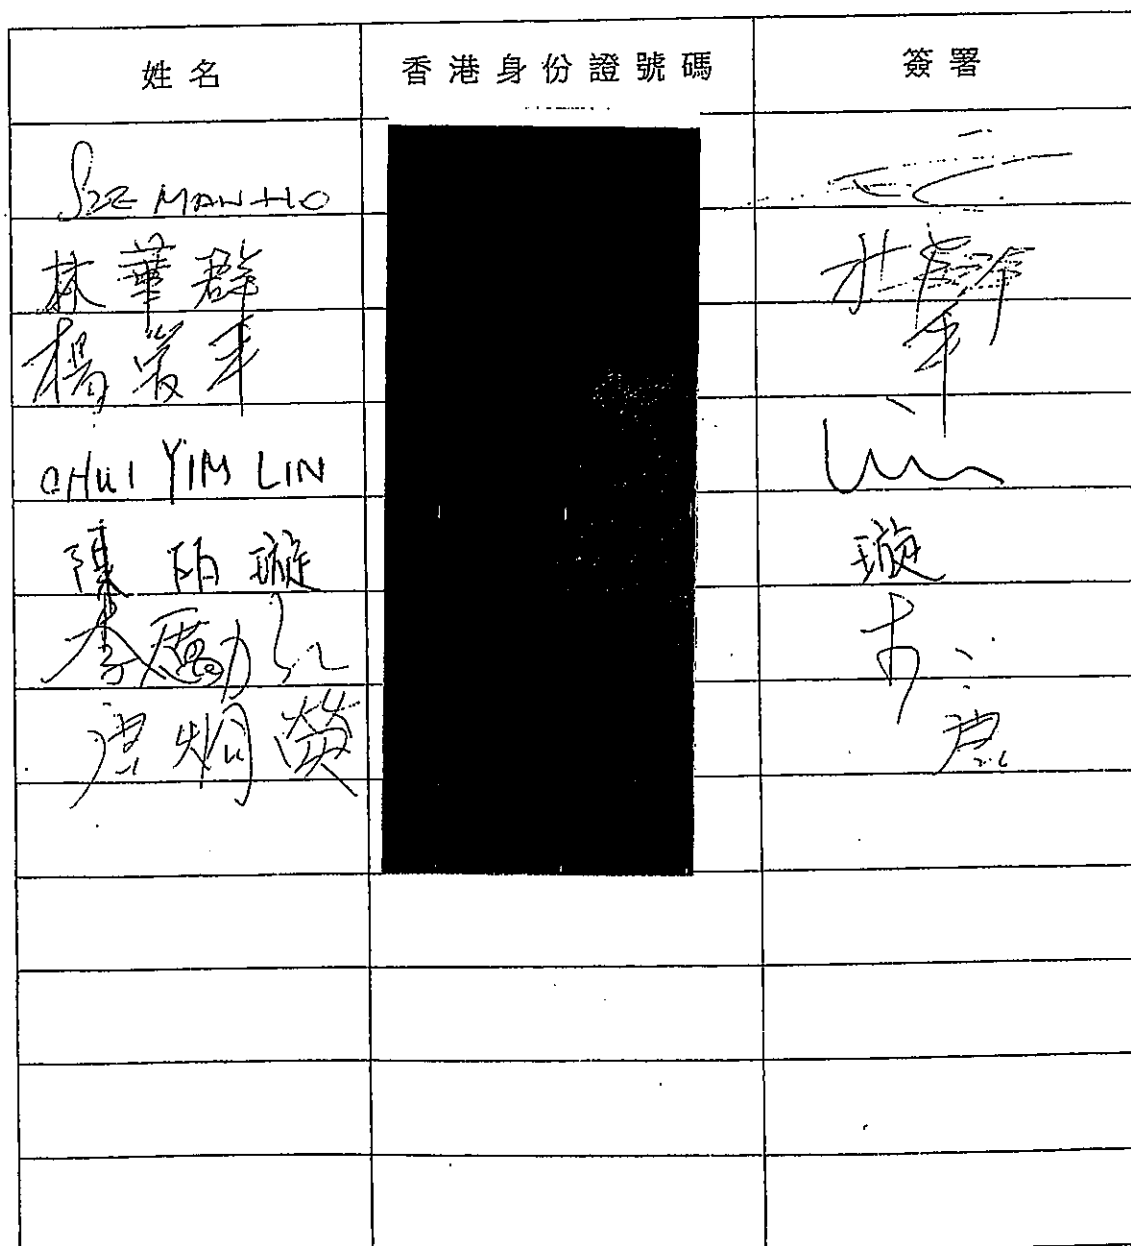 姓名 香港身份證號碼 簽署
SZE MAN HO
林華群
楊 平
CHUI YIM LIN Lin
陳珀璇 璇
李勵
唐炯 唐